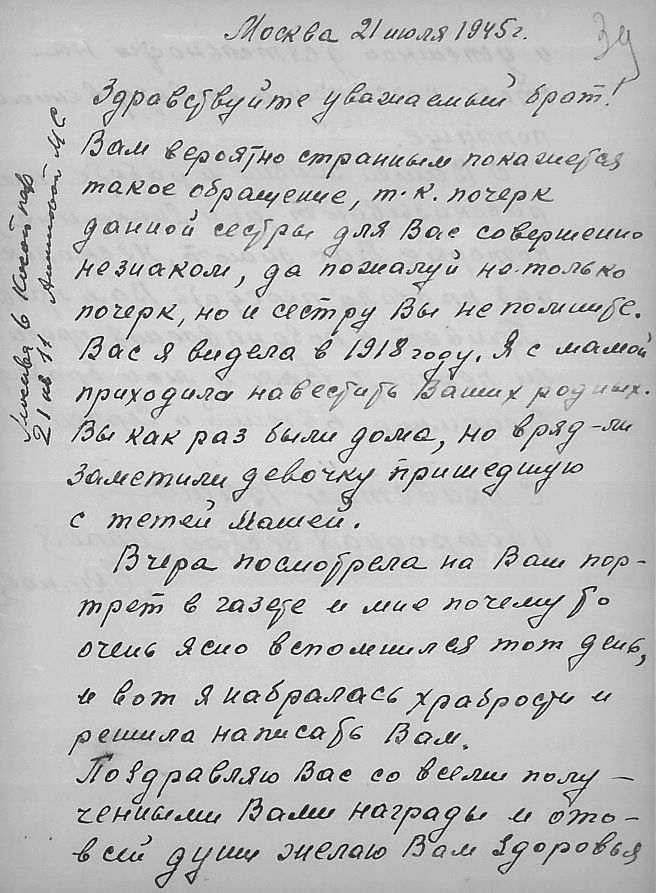 Москва 21 июля 1945 г.
39
Здравствуйте уважаемый брат!
Вам вероятно странным покажется
такое обращение, т.к. почерк
данной сестры для Вас совершенно
незнаком, да пожалуй не только
почерк, но и сестру Вы не помните.
Вас я видела в 1918 году. Я с мамой
приходила навестить Ваших родных.
Вы как раз были дома, но вряд-ли
заметили девочку пришедшую
с тетей Машей.
Вчера посмотрела на Ваш пор-
трет в газете и мне почему то
очень ясно вспомнился тот день,
и вот я набралась храбрости и
решила написать Вам.
Поздравляю Вас со всеми полу-
ченными Вами награды и ото-
всей души желаю Вам здоровья
Москва 6
21 кв 11